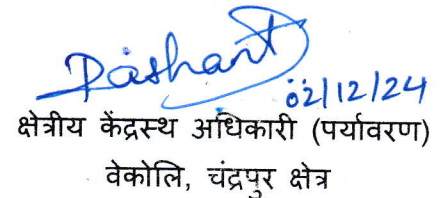 Dashant
02/12/24
क्षेत्रीय केंद्रस्थ अधिकारी (पर्यावरण)
वेकोलि, चंद्रपुर क्षेत्र